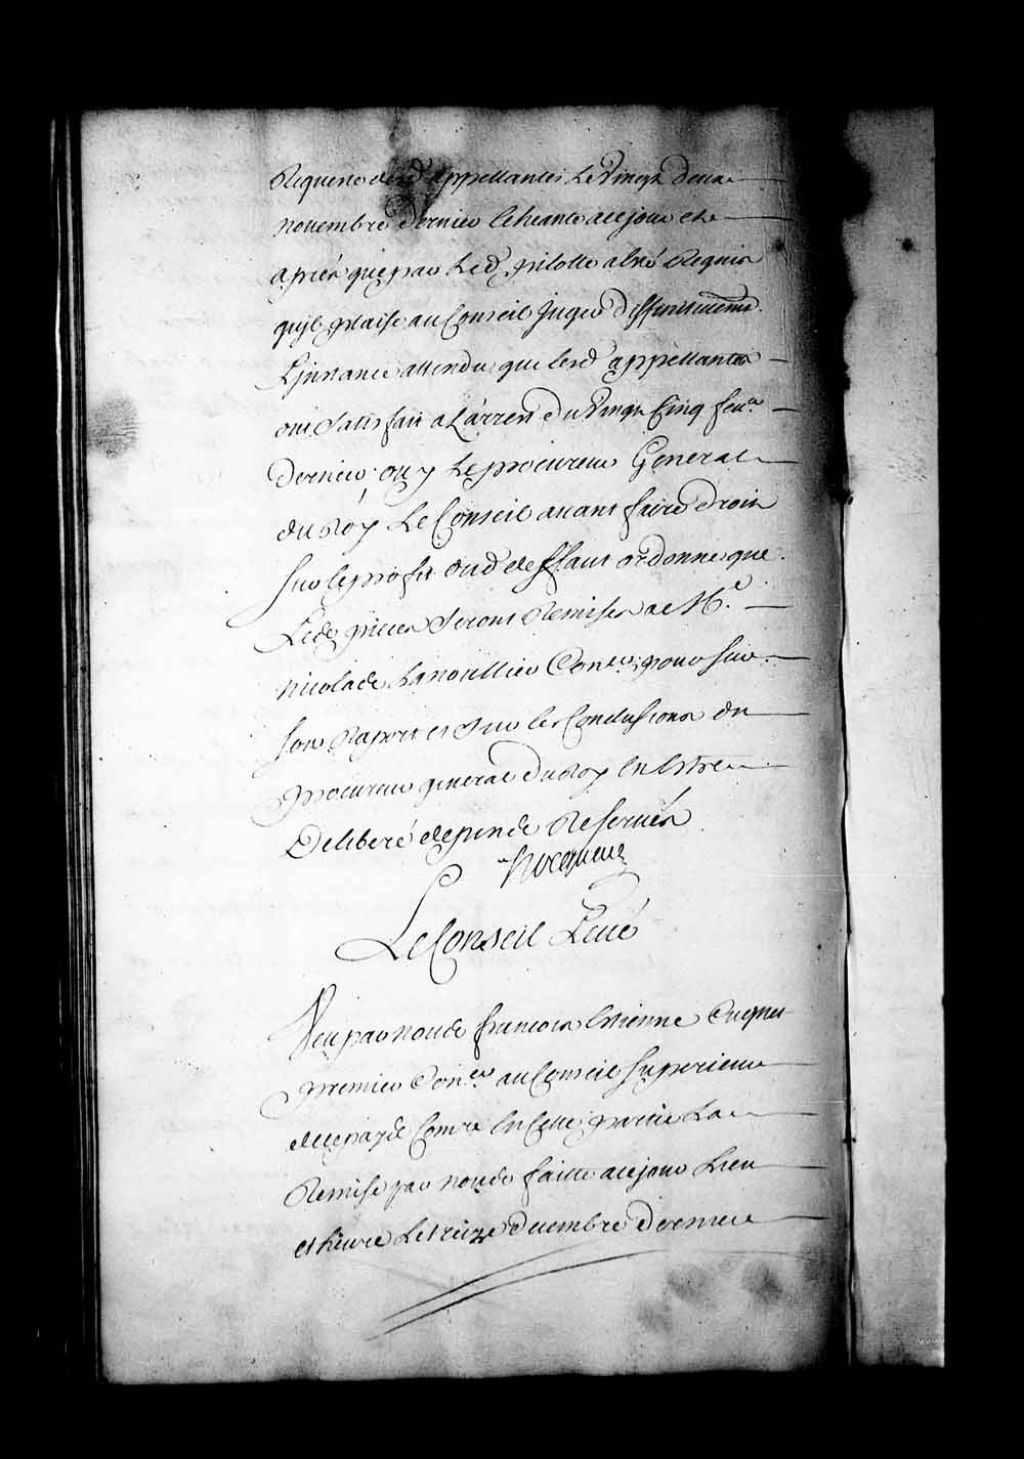 Requeste desd. appellantes Le Vingt deux
novembre dernier Escheante a ce jour et
aprés que par Led. pilotte a Esté Requis
qu'il plaise au Conseil Juger diffinitivemt.
L'jnstance attendu que lesd appellantes
ont Satisfait a L'arrest du Vingt Cinq feu.er
Dernier; ouy Le procureur General
du Roy Le Conseil auant faire droit
sur le profit dud deffaut ordonne que
Lesd. pieces Seront Remises a Me.
Nicolas Lanoullier Coner. pour sur
son Raport et Sur les Conclusions du
procureur general du Roy En Estre
Deliberé depends Reserués
hocquart
Le Conseil Leué
Veu par nous françois Estienne Cugnet
premier Coner. au Conseil Superieur
de ce pays Comre En Cette partie La
Remise par nous faitte a ce jour Lieu
et heure Le treize decembre dernier